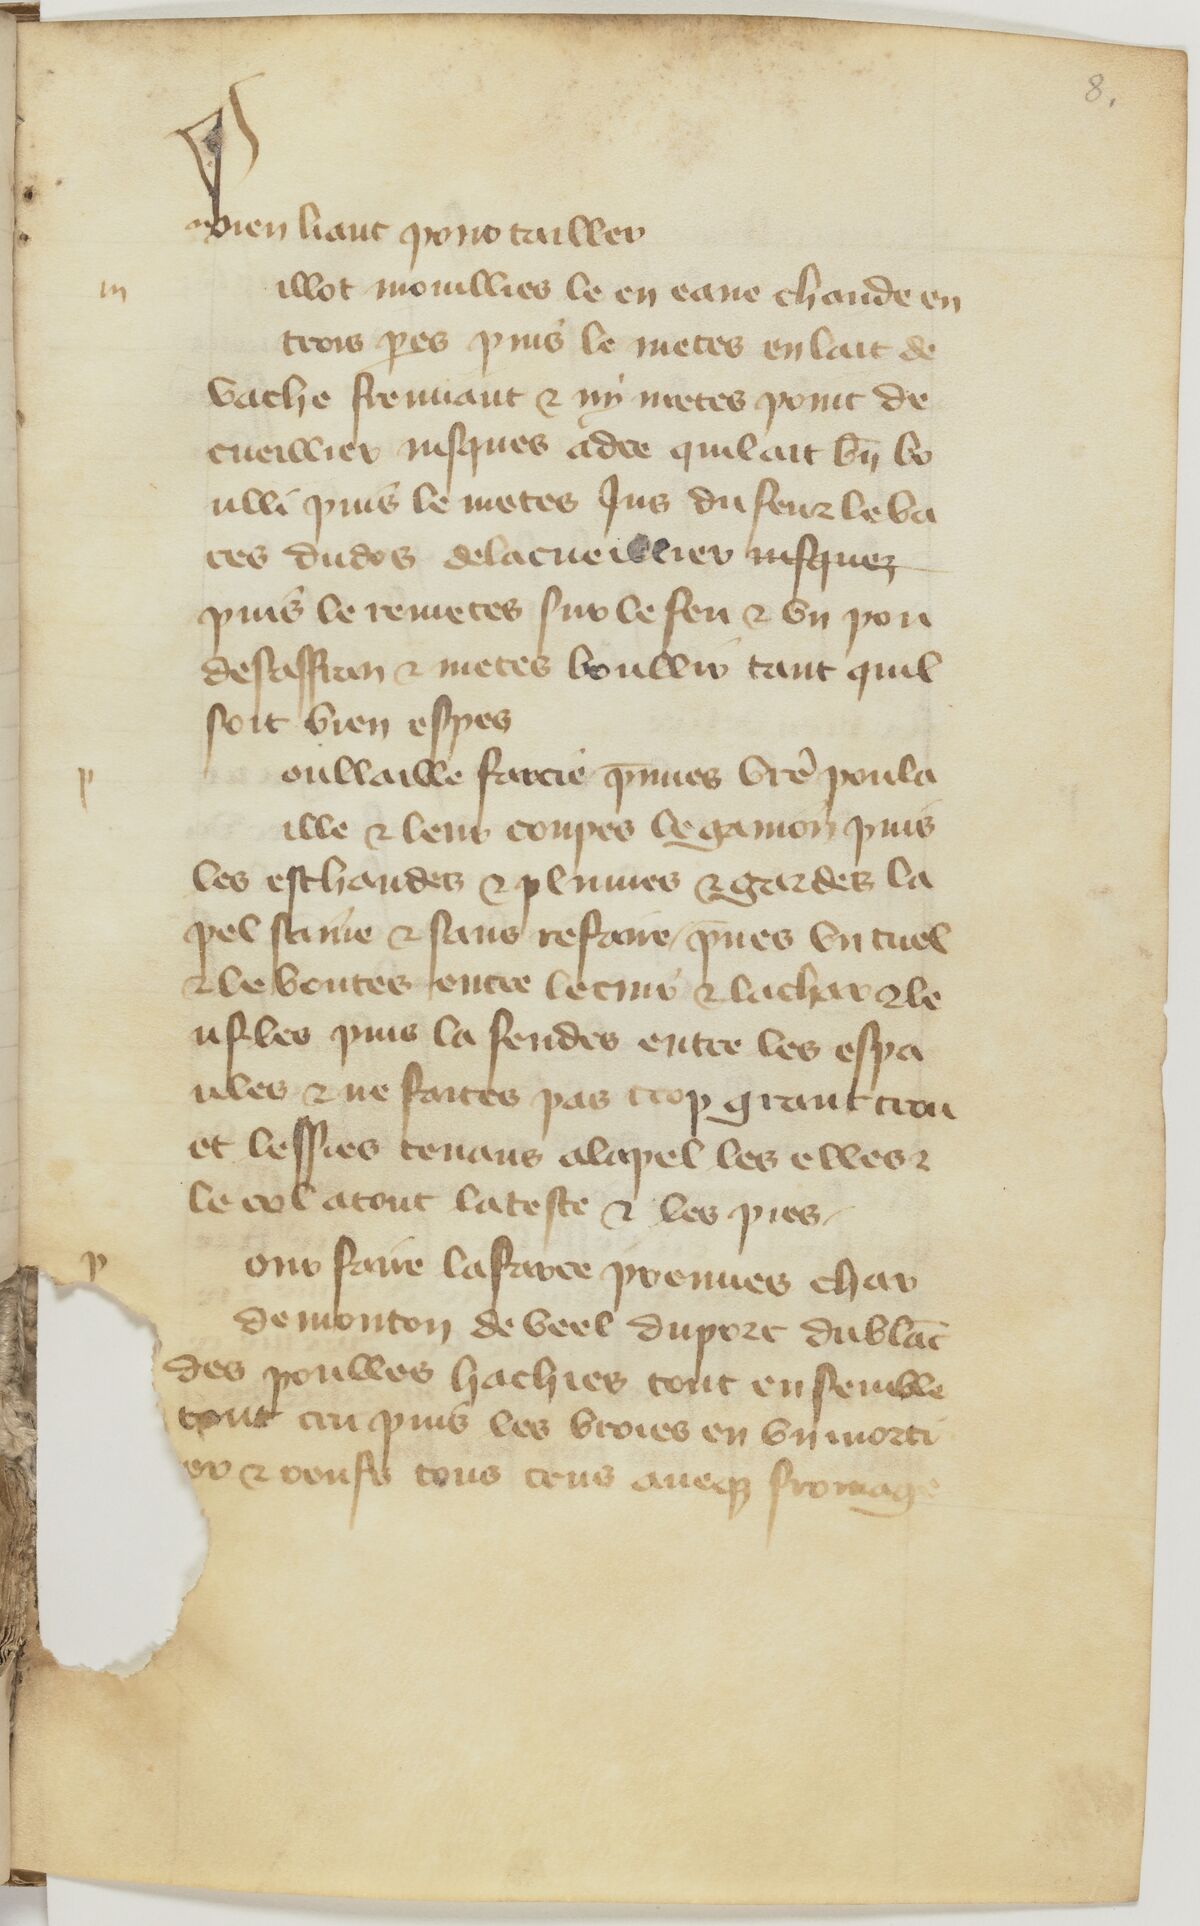 8.
bien liant pour tailler
m
illot mouillies le en eaue chaude en
trois pes puis le metes en lait de
vache fremiant & ny metes point de
cueillier iusques adce quil ait bn bo
ulli puis le metes Jus du feu & le ba
tes du dos de la cueillier iusquez
puis le remetes sur le feu & vn pou
de saffran & metes boullir tant quil
soit bien espes
p
oullaille farcie pnnes vre poula
ille & leur coupes le gamon puis
les eschaudes & plumes & gardes la
pel saine & sans refaire / pnes vn tuel
& le boutes entre le cuir & la char & le
nfles puis la fendes entre les espa
ules & ne faites pas trop grant trou
et lessies tenans a la pel les elles &
le col a tout la teste & les pies /
p
our faire la farce prennes char
de mouton de veel du porc du blac
des poulles hachies tout ensemble
tout cru puis les broies en vn morti
er & oeufs tous crus aueqz fromage